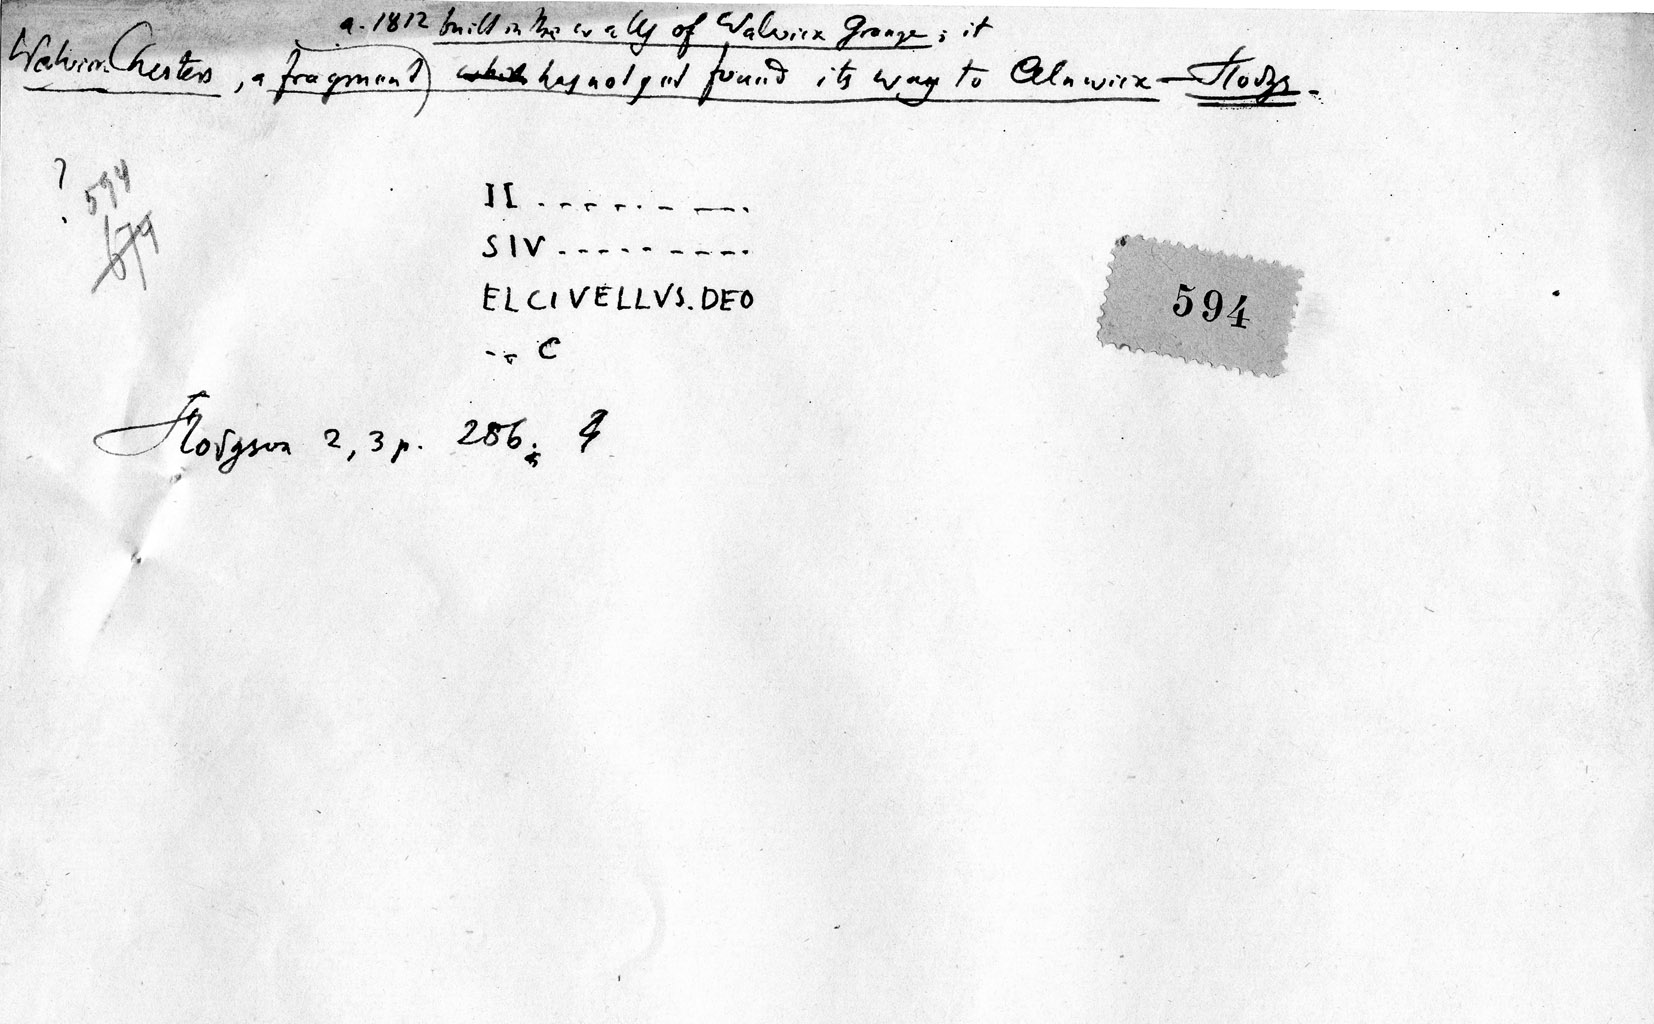 a. 1812 built in the walls of Walwick Grange; it
Walwick Chesters, a fragment) which has not yet found its way to Alnwick — Hodgs.
?
594
679
II . - - - - - - - .
SIV . - - - - - - - .
ELCIVELLVS. DEO
594
- - C
Hodgson 2, 3 p. 286;